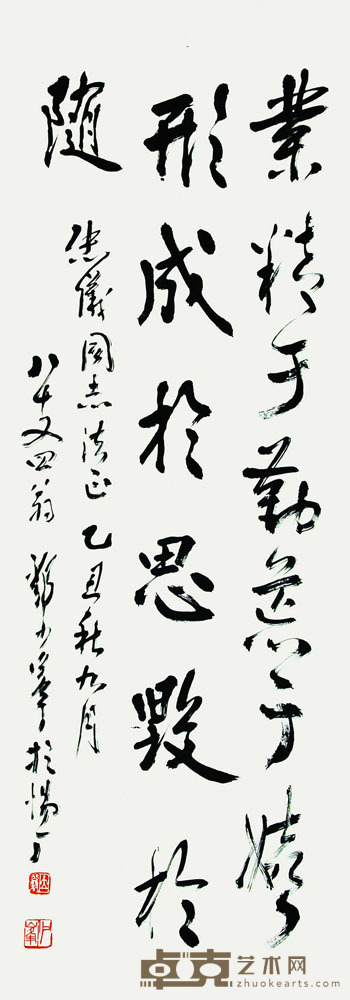 業精于勤荒于嬉
形成於思毀於
隨
儀同志法正 乙丑秋九月
八十又四翁 少峯於
卓克艺术网
zhuokearts.com